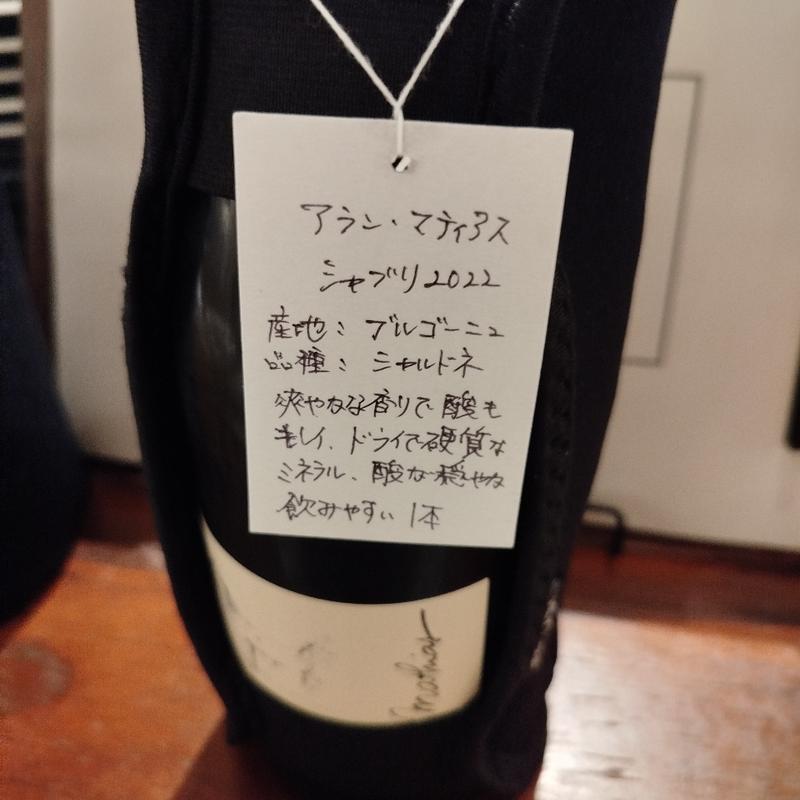 アラン・マティアス
シャブリ2022
産地：ブルゴーニュ
品種：シャルドネ
爽やかな香りで酸も
、ドライで硬質な
ミネラル、酸が穏やかな
飲みやすい1本
mathias